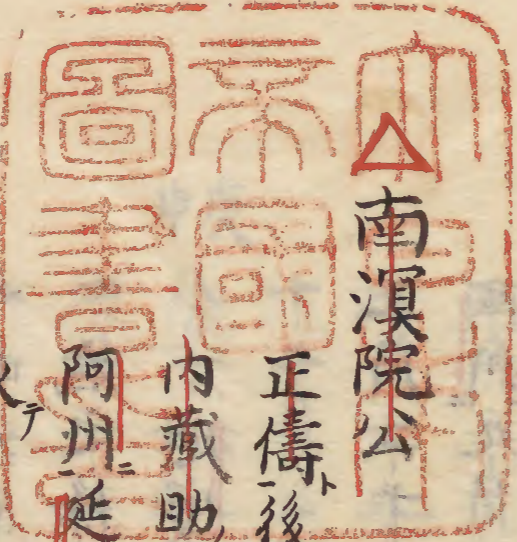 △南溟院公
正儔ト後
内藏助
阿州ニ延
テ
帝國圖書